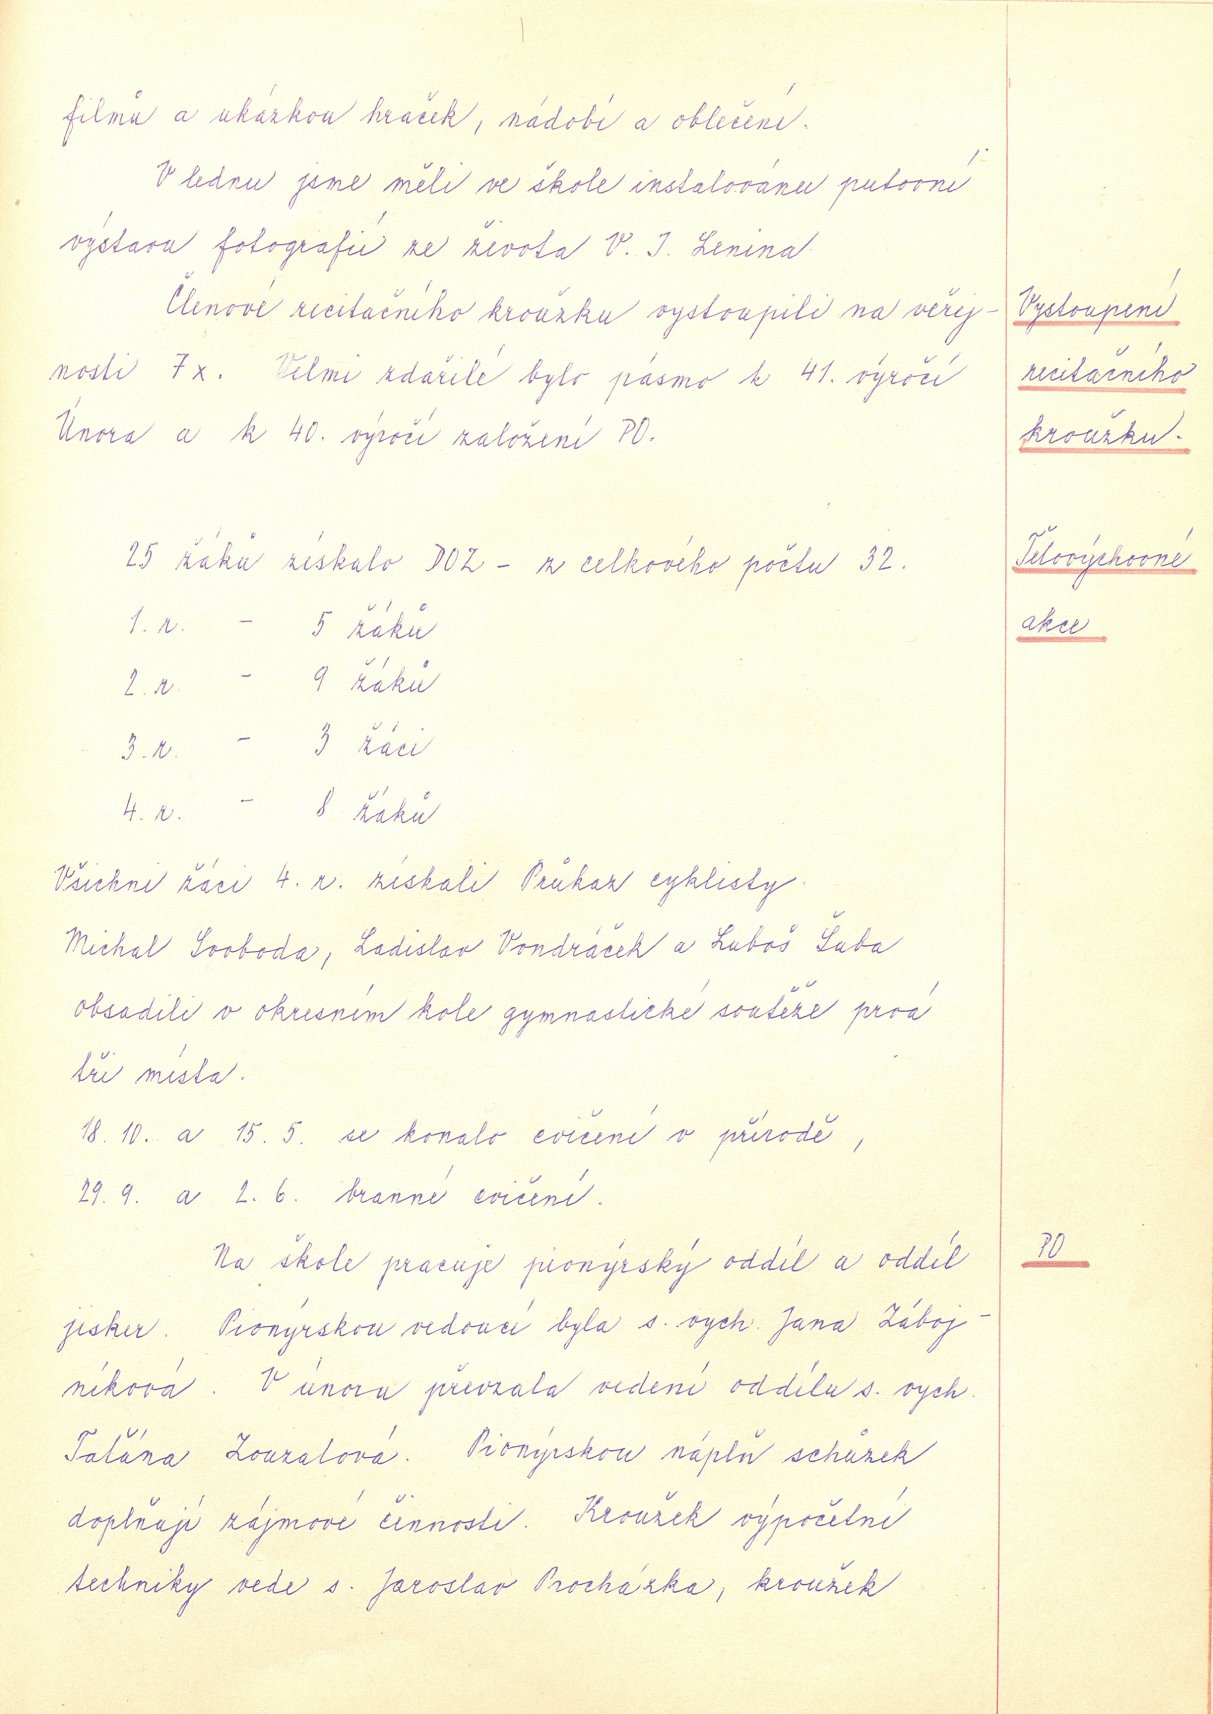 filmů a ukázkou hraček, nádobí a oblečení.
V lednu jsme měli ve škole instalovánu putovní
výstavu fotografií ze života V. I. Lenina.
Členové recitačního kroužku vystoupili na veřej-
nosti 7x. Velmi zdařilé bylo pásmo k 41. výročí
Února a k 40. výročí založení PO.
Vystoupení
recitačního
kroužku.
25 žáků získalo DOZ - z celkového počtu 32.
1. r. - 5 žáků
2. r. - 9 žáků
3. r. - 3 žáci
4. r. - 8 žáků
Tělovýchovné
akce
Všichni žáci 4. r. získali Průkaz cyklisty.
Michal Svoboda, Ladislav Vondráček a Luboš Šuba
obsadili v okresním kole gymnastické soutěže prvá
tři místa.
18. 10. a 15. 5. se konalo cvičení v přírodě,
29. 9. a 2. 6. branné cvičení.
Na škole pracuje pionýrský oddíl a oddíl
jisker. Pionýrskou vedoucí byla s. vych. Jana Záboj-
níková. V únoru převzala vedení oddílu s. vych.
Taťána Zouzalová. Pionýrskou náplň schůzek
doplňují zájmové činnosti. Kroužek výpočetní
techniky vede s. Jaroslav Procházka, kroužek
PO